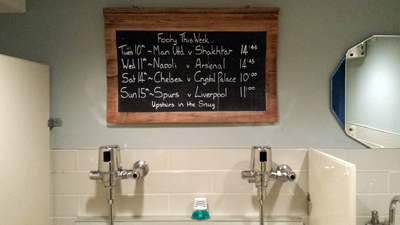 Footy This Week...
Tues 10th ~ Man Utd v Shakhtar 14:45
Wed 11th ~ Napoli v Arsenal 14:45
Sat 14th ~ Chelsea v Crystal Palace 10:00
Sun 15th ~ Spurs v Liverpool 11:00
Upstairs in the Snug